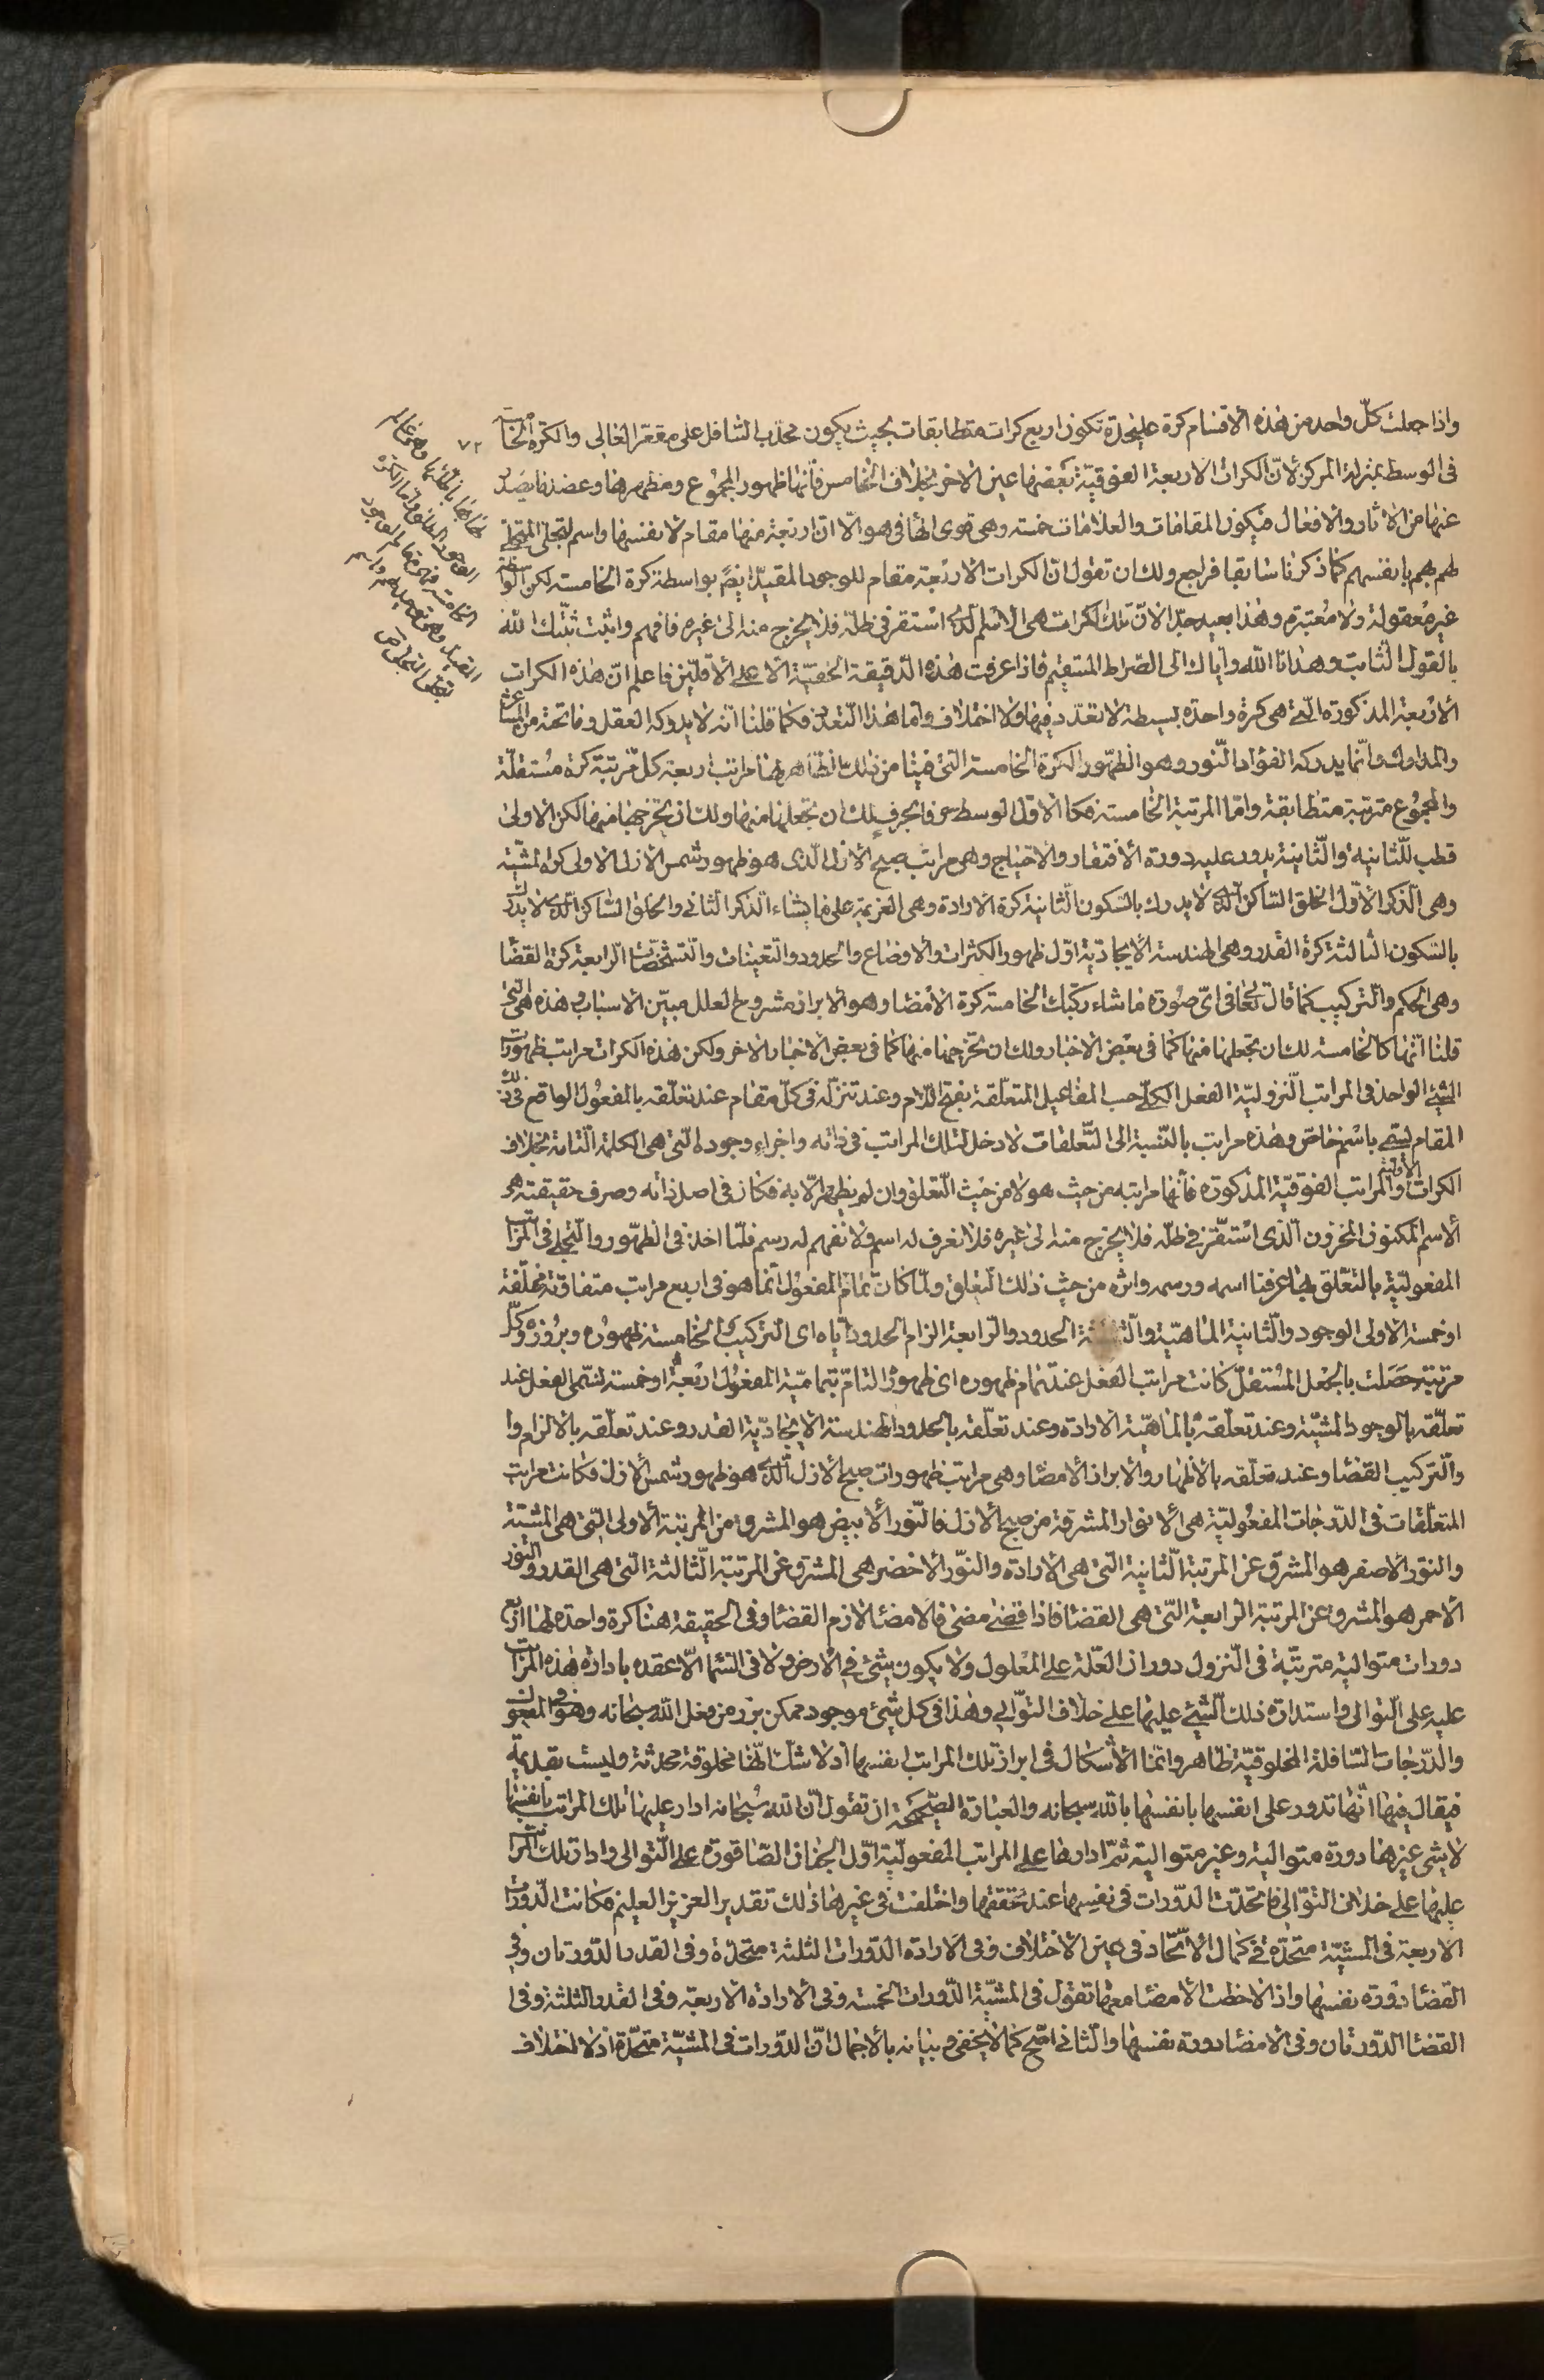 واذا جعلت كلّ واحد من هذه الاقسام كرة عليحدة تكون اربع كرات متطابقات بحيث يكون محدّب السّافل على مقعّر العالى والكرة الخامسة
فى الوسط بمنزلة المركز لانّ الكرات الاربعة الفوقيّة بعضها عين الاخر بخلاف الخامس فانّها ظهور المجموع ومظهرها وعضدها يصدر
عنها من الاثار والافعال فيكون المقامات والعلامات خمسه وهى قوى الهافى هو الّا انّ اربعة منها مقام لانفسها واسم لتجلّى المتجلّى
لهم بهم بانفسهم كما ذكرنا سابقا فراجع ولك ان تقول انّ الكرات الاربعة مقام للوجود المقيّد ايضًا بواسطة كرة الخامسة لكن الواسطة
غير معقولة ولا معتبرة وهذا بعيد جدّا لانّ تلك الكرات هى الاسم الّذى استقر فى ظلّه فلا يخرج منه الى غيره فافهم واثبت ثبّتك الله
بالقول الثّابت وهدانا الله وايّاك الى الصّراط المستقيم فاذا عرفت هذه الدّقيقة الخفيّة الا على الاقلّين فاعلم انّ هذه الكرات
الاربعة المذكورة الّتى هى كرة واحدة بسيطة لا تعدّد فيها ولا اختلاف وامّا هذا التّعدّد فكما قلنا انّه لا يدركه العقل وما تحته من المشاعر
والمدارك وانّما يدركه الفؤاد النّور وهو الظّهور الكرة الخامسة التى فينا من تلك المظاهر لها مراتب اربعة كلّ مرتبة كرة مستقلّة
والمجموع مترتبة متطابقة وامّا المرتبة الخامسة فكالاوّل الوسط حرفا بحرف لك ان تجعلها منها ولك ان تخرجها منها لكن الاولى
قطب للّثانية والّثانية يدور عليه دورة الافتقار والاحتياج وهى مراتب صبح الازل الّذى هو ظهور شمس الازل الاولى كرة المشيّة
وهى الّذكر الاوّل الخلق السّاكن الّذى لا يدرك بالسّكون الثّانية كرة الارادة وهى العزيمة على ما يشاء الّذكر الثّانى والخلق السّاكن الّذى لا يدرك
بالسّكون الثّالثة كرة القدر وهى الهندسة الايجاديّة اوّل ظهور الكثرات والاوضاع والحدود والتّعينات والتّشخّصات الرّابعة كرة القضا
وهى الحكم والتّركيب كما قال تعالى فى اىّ صورة ما شاء ركّبك الخامسة كرة الامضا وهو الابراز مشروح العلل مبيّن الاسباب وهذه هى الّتى
قلنا انّها كالخامسة لك ان تجعلها منها كما فى بعض الاخبار ولك ان تخرجها منها كما فى بعض الاخبار الاخر ولكن هذه الكرات مراتب ظهورات
الشّيئ الواحد فى المراتب النّزوليّة الفعل الكلّى حسب المفاعيل المتعلّقة بفتح اللّام وعند تنزّله فى كلّ مقام عند تعلّقه بالمفعول الواقع فى ذلك
المقام يسمّى باسم خاصّ وهذه مراتب بالنّسبة الى التّعلقات لا دخل لتلك المراتب فى ذاته واجزاء وجوده الّتى هى الكلمة التّامة بخلاف
الكرات الاوّلية والمراتب الفوقيّة المذكورة فانّها مراتبه من حيث هو لا من حيث التّعلق وان لم يظهر الّا به فكان فى اصل ذاته وصرف حقيقته هو
الاسم المكنون المخزون الّذى استقرّ فى ظلّه فلا يخرج منه الى غيره فلا نعرف له اسم ولا نفهم له رسم فلمّا اخذ فى الظّهور والتّجلى فى المراتب
المفعوليّة بالتعلّق بها عرفنا اسمه ورسمه واثره من حيث ذلك التّعلق ولمّا كان تمام المفعول انّما هو فى اربع مراتب متفاوتة مختلفة
او خمسة الاولى الوجود والثّانية الماهيّة والثّالثة الحدود والرّابعة الزام الحدود ايّاه اى التركيب والخامسة ظهوره وبروزه وكلّ
مرتبة حصلت بالجعل المستقلّ كانت مراتب الفعل عند تمام ظهوره اى ظهور التامّ بتماميّة المفعول اربعة او خمسة تسمّى الفعل عند
تعلّقه بالوجود المشيّة وعند تعلّقه بالماهيّة الارادة وعند تعلّقه بالحدود الهندسة الايجاديّة القدر وعند تعلّقه بالالزام وا
والّتركيب القضا وعند تعلّقه بالاظهار والابراز الامضا وهى مراتب ظهورات صبح الازل الّذى هو ظهور شمس الازل فكانت مراتب
المتعلّقات فى الدّرجات المفعوليّة هى الانوار المشرقة من صبح الازل فالنّور الابيض هو المشرق من المرتبة الاولى الّتى هى المشيّة
والنّور الاصفر هو المشرق عن المرتبة الثّانية الّتى هى الارادة والنّور الاخضر هى المشرق عن المرتبة الثّالثة الّتى هى القدر والنّور
الاحمر هو المشرق عن المرتبة الرابعة الّتى هى القضا فاذا قضى مضى فالامضا لازم القضا وفى الحقيقة هنا كرة واحدة لها اربع
دورات متوالية مترتبة فى النّزول دوران العلّة على المعلول ولا يكون شئ فى الارض ولا فى السّما الّا عقده بادارة هذه المراتب
عليه على التّوالى واستدارة ذلك الشّيئ عليها على خلاف التّوالى وهذا فى كل شيئ موجود ممكن برز من فعل الله سبحانه وهو المفعول
والدّرجات السّافلة المخلوقيّة ظاهر وانّما الاشكال فى ابراز تلك المراتب انفسها اذ لا شكّ انّها مخلوقة محدثة وليست بقديمة
فيقال فيها انّها تدور على انفسها بانفسها بالله سبحانه والعبارة الصّحيحة ان تقول انّ الله سبحانه ادار عليها تلك المراتب بانفسها
لا بشئ غيرها دورة متوالية وغير متوالية ثمّ ادارها على المراتب المفعوليّة اوّل الجنان الصّاقورة على التّوالى وادار تلك المراتب
عليها على خلاف التّوالى فاتحدّت الدّورات فى نفسها عند تحققها واختلفت فى غيرها ذلك تقدير العزيز العليم فكانت الدّورات
الاربعة فى المشيّة متحدّة فى كمال الاتّحاد فى عين الاختلاف وفى الارادة الدّورات الثلثة متحدّة وفى القدر الدّورتان وفى
القضا دورة نفسها واذا لاحظت الامضا معها تقول فى المشيّة الدّورات الخمسة وفى الارادة الاربعة وفى القدر الثلثة وفى
القضا الدّورتان وفى الامضا دورة نفسها والثّانى اصّح كما لا يخفى وبيانه بالاجمال انّ الدّورات فى المشيّة متحدّة اذ لا اختلاف
٧٢